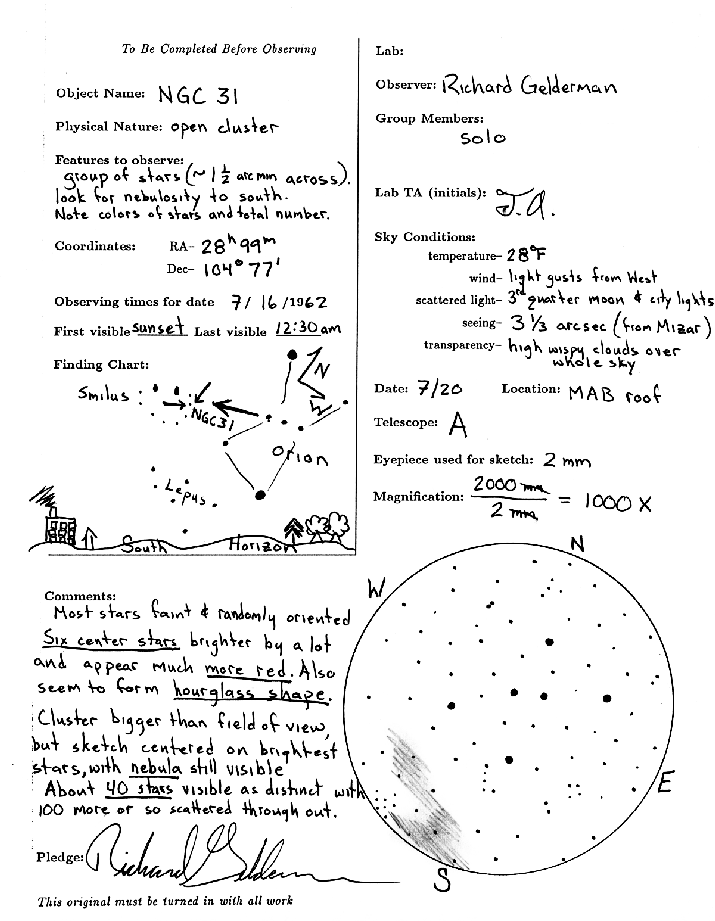 To Be Completed Before Observing
Object Name: NGC 31
Physical Nature: open cluster
Features to observe:
group of stars (~ 1 1/2 arcmin across).
look for nebulosity to south.
Note colors of stars and total number.
Coordinates: RA- 28h 99m
Dec- 104° 77'
Observing times for date 7/16/1962
First visible sunset Last visible 12:30am
Finding Chart:
N
W
Smilus
NGC31
Orion
Lepus
South Horizon
Lab:
Observer: Richard Gelderman
Group Members:
solo
Lab TA (initials): J.A.
Sky Conditions:
temperature- 28°F
wind- light gusts from West
scattered light- 3rd quarter moon & city lights
seeing- 3 1/3 arcsec (from Mizar)
transparency- high wispy clouds over
whole sky
Date: 7/20 Location: MAB roof
Telescope: A
Eyepiece used for sketch: 2 mm
Magnification: 2000 mm / 2 mm = 1000 X
N
W
E
S
Comments:
Most stars faint & randomly oriented
Six center stars brighter by a lot
and appear much more red. Also
seem to form hourglass shape.
Cluster bigger than field of view,
but sketch centered on brightest
stars, with nebula still visible
About 40 stars visible as distinct with
100 more or so scattered through out.
Pledge: Richard Gelderman
This original must be turned in with all work